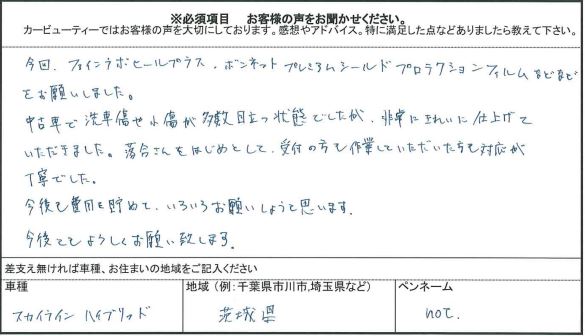 ※必須項目　お客様の声をお聞かせください。
カービューティーではお客様の声を大切にしております。感想やアドバイス。特に満足した点などありましたら教えて下さい。
今回、ファインラボヒールプラス、ボンネット プレミアムシールド プロテクションフィルムなどなど
をお願いしました。
中古車で洗車傷や小傷が多数目立つ状態でしたが、非常にきれいに仕上げて
いただきました。落合さんをはじめとして、受付の方も作業していただいた方も対応が
丁寧でした。
今後も費用を貯めて、いろいろお願いしようと思います。
今後ともよろしくお願い致します。
差支え無ければ車種、お住まいの地域をご記入ください
車種
地域（例:千葉県市川市,埼玉県など）
ペンネーム
スカイライン ハイブリッド
茨城県
not.